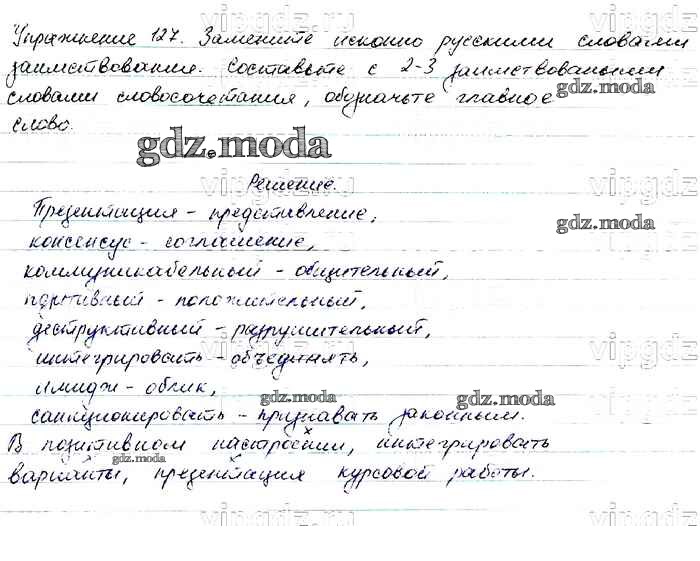 Упражнение 127. Замените исконно русскими словами
заимствования. Составьте с 2-3 заимствованными
словами словосочетания, обозначьте главное
слово.
gdz.moda
Решение.
Презентация - представление,
консенсус - соглашение,
коммуникабельный - общительный,
позитивный - положительный,
деструктивный - разрушительный,
интегрировать - объединять,
имидж - облик,
санкционировать - признавать законным.
В позитивном настроении, интегрировать
варианты, презентация курсовой работы.